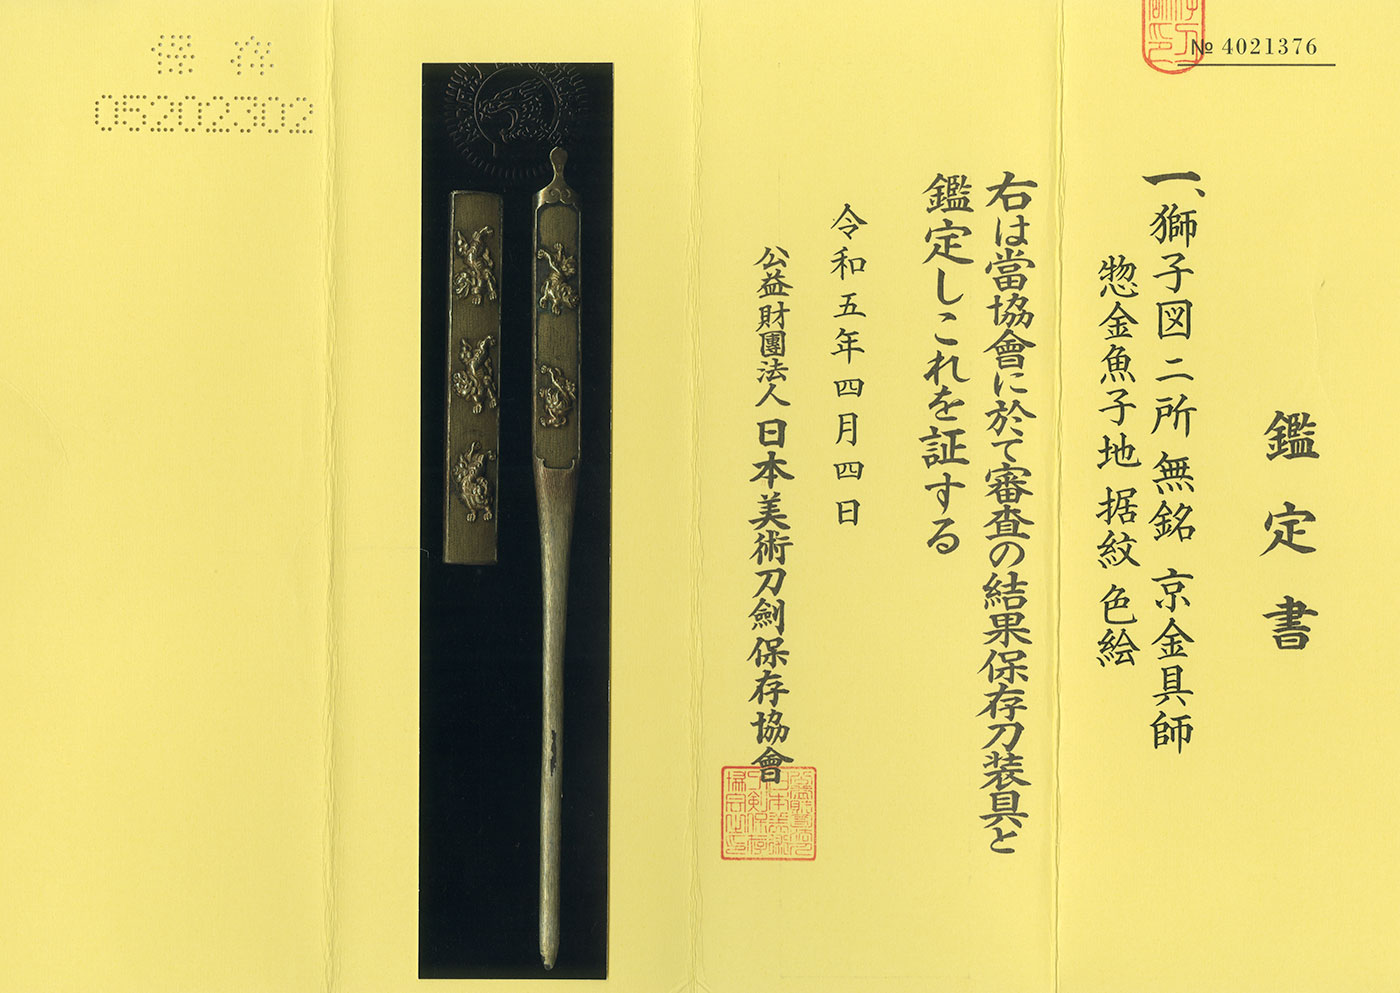 鑑定書
№ 4021376
一、獅子図二所 無銘 京金具師
惣金魚子地 据紋 色絵
右は當協會に於て審査の結果保存刀装具と
鑑定しこれを証する
令和五年四月四日
公益財團法人 日本美術刀劍保存協會
保存
05202302